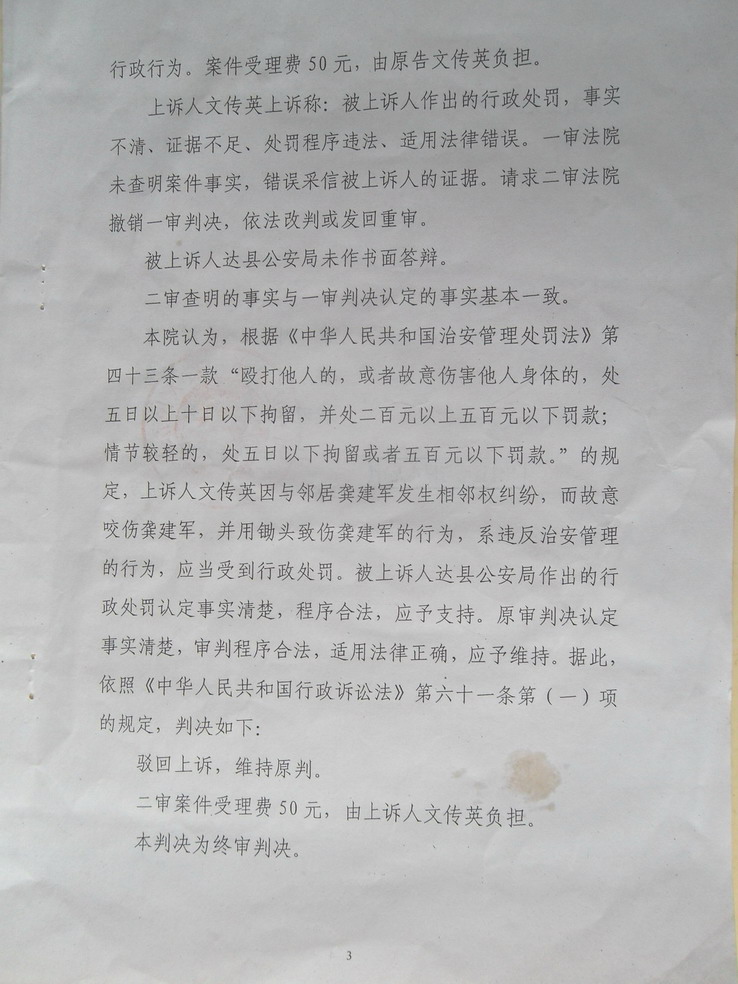 行政行为。案件受理费 50 元，由原告文传英负担。
上诉人文传英上诉称：被上诉人作出的行政处罚，事实
不清、证据不足、处罚程序违法、适用法律错误。一审法院
未查明案件事实，错误采信被上诉人的证据。请求二审法院
撤销一审判决，依法改判或发回重审。
被上诉人达县公安局未作书面答辩。
二审查明的事实与一审判决认定的事实基本一致。
本院认为，根据《中华人民共和国治安管理处罚法》第
四十三条一款“殴打他人的，或者故意伤害他人身体的，处
五日以上十日以下拘留，并处二百元以上五百元以下罚款；
情节较轻的，处五日以下拘留或者五百元以下罚款。”的规
定，上诉人文传英因与邻居龚建军发生相邻权纠纷，而故意
咬伤龚建军，并用锄头致伤龚建军的行为，系违反治安管理
的行为，应当受到行政处罚。被上诉人达县公安局作出的行
政处罚认定事实清楚，程序合法，应予支持。原审判决认定
事实清楚，审判程序合法，适用法律正确，应予维持。据此，
依照《中华人民共和国行政诉讼法》第六十一条第（一）项
的规定，判决如下：
驳回上诉，维持原判。
二审案件受理费 50 元，由上诉人文传英负担。
本判决为终审判决。
3